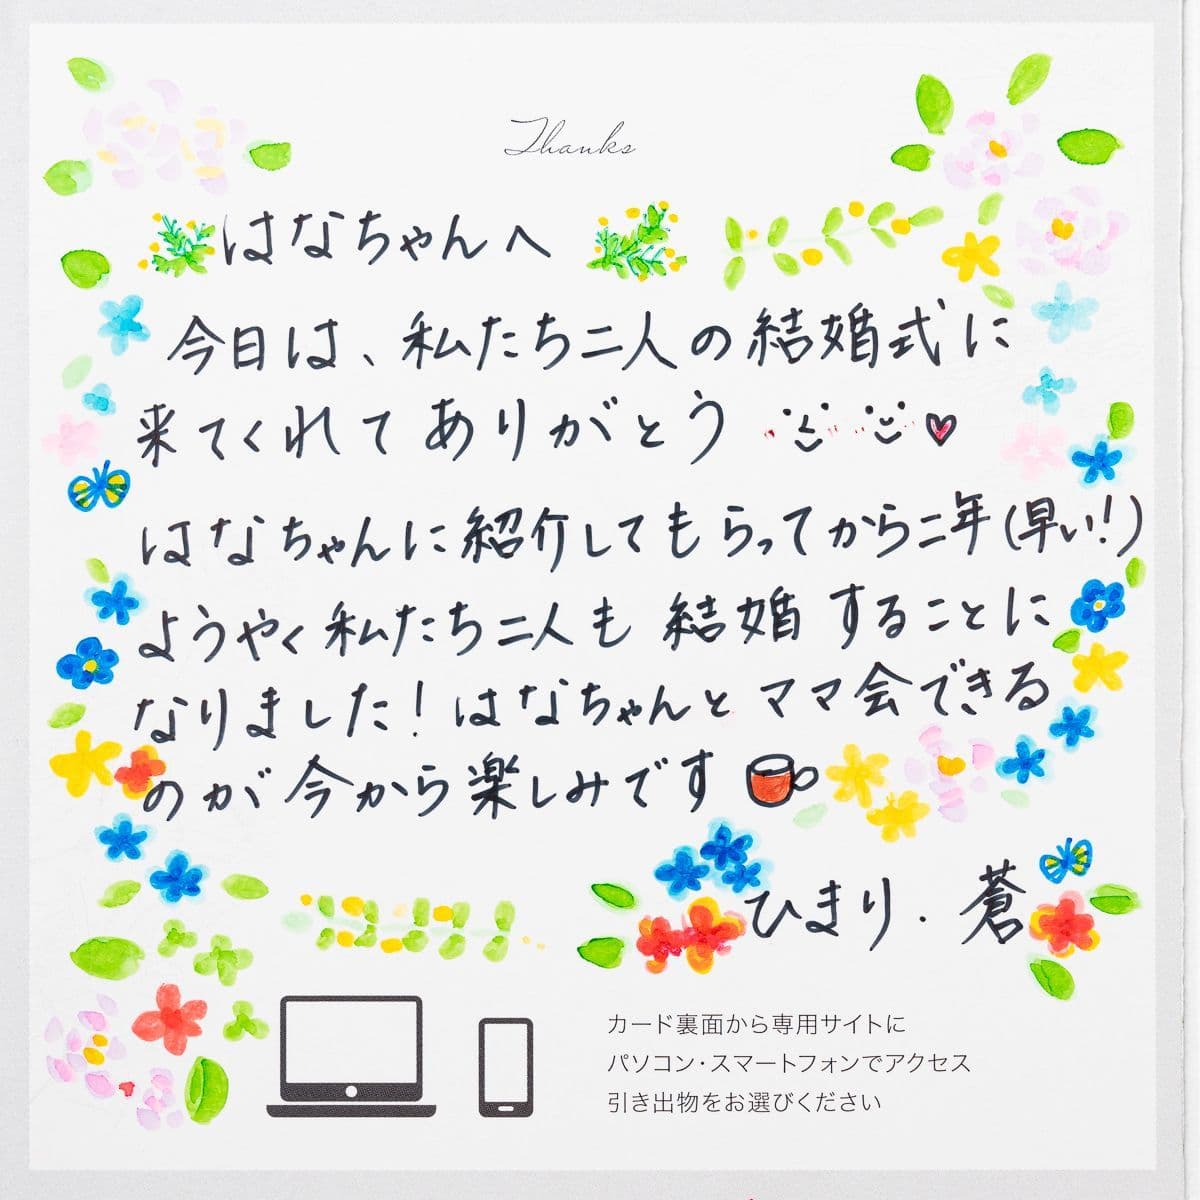 Thanks
はなちゃんへ
今日は、私たち二人の結婚式に
来てくれてありがとう
はなちゃんに紹介してもらってから二年(早い!)
ようやく私たち二人も結婚することに
なりました!はなちゃんとママ会できる
のが今から楽しみです
ひまり.蒼
カード裏面から専用サイトに
パソコン・スマートフォンでアクセス
引き出物をお選びください